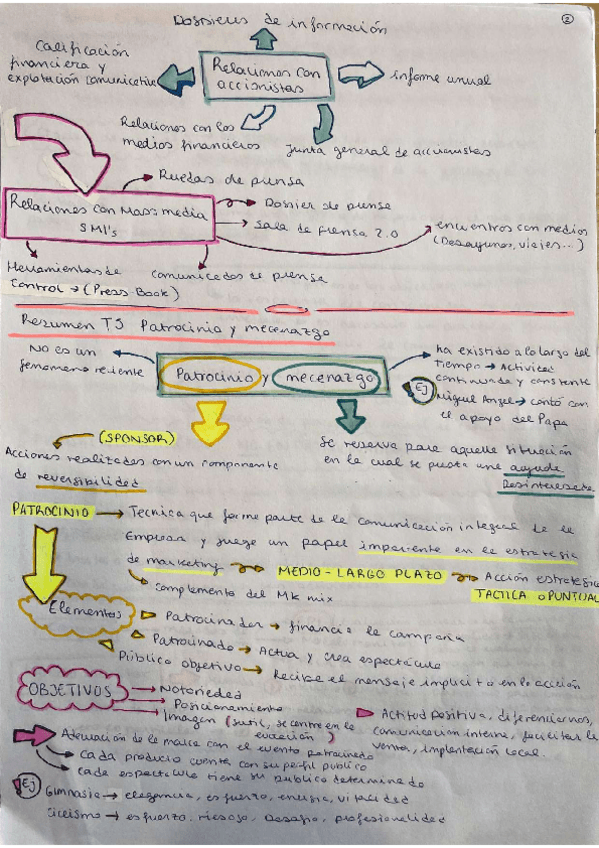 2
Dossieres de información
Calificación
financiera y
explotación comunicativa
Relaciones con
accionistas
informe anual
Relaciones con los
medios financieros
Junta general de accionistas
Ruedas de prensa
Relaciones con Mass media
SMI's
Dossier de prensa
Sala de Prensa 2.0
encuentros con medios
(Desayunos, viajes...)
Herramientas de
Control → (Press Book)
comunicados de prensa
Resumen T5 Patrocinio y mecenazgo
No es un
fenomeno reciente
Patrocinio y mecenazgo
ha existido a lo largo del
tiempo → Actividad
continuada y constante
EJ Miguel Angel → contó con
el apoyo del Papa
(SPONSOR)
Acciones realizadas con un componente
de reversibilidad
Se reserva para aquella situación
en la cual se presta una ayuda
Desinteresada.
PATROCINIO → Tecnica que forma parte de la comunicación integral de la
Empresa y juega un papel importante en la estrategia
de marketing → MEDIO - LARGO PLAZO → Acción estrategica
TACTICA o PUNTUAL
complemento del MK mix
Elementos
Patrocinador → financia la campaña
Patrocinado → Actua y crea espectáculo
Público objetivo → Recibe el mensaje implicito en la acción
OBJETIVOS
→ Notoriedad
→ Posicionamiento
→ Imagen (sutil, se centra en la
evocación)
Actitud positiva, diferenciarnos,
comunicación interna, facilitar la
venta, implantación local.
Adecuación de la marca con el evento patrocinado
Cada producto cuenta con su perfil publico
cada espectaculo tiene su publico determinado
EJ Gimnasia → elegancia, esfuerzo, energia, vitalidad
Ciclismo → esfuerzo, riesgo, Desafio, profesionalidad